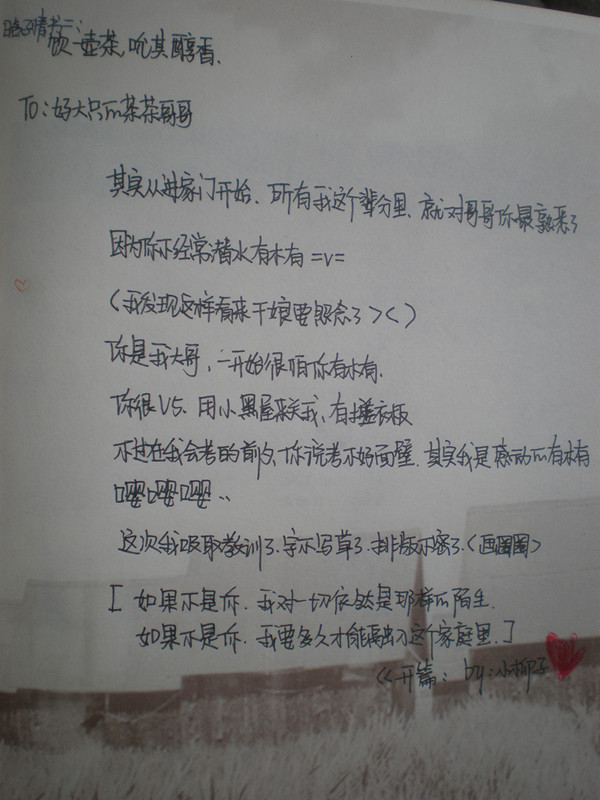 情书二:
饮一壶茶,吮其醇香.
TO:好大只的茶茶哥哥
其实从进家门开始.所有我这个辈分里.就对哥哥你最熟悉了
因为你不经常潜水有木有=v=
(我发现这样看来干娘要怨念了><)
你是我大哥,一开始很怕你有木有.
你很V5.用小黑屋来关我,有搓衣板
不过在我会考的前夕,你说考不好面壁.其实我是感动的有木有
嘤嘤嘤..
这次我吸取教训了.字不写草了.排版不密了.<画圈圈>
[如果不是你.我对一切依然是那样的陌生.
如果不是你.我要多久才能融入这个家庭里.]
<<开篇: by:小柳子